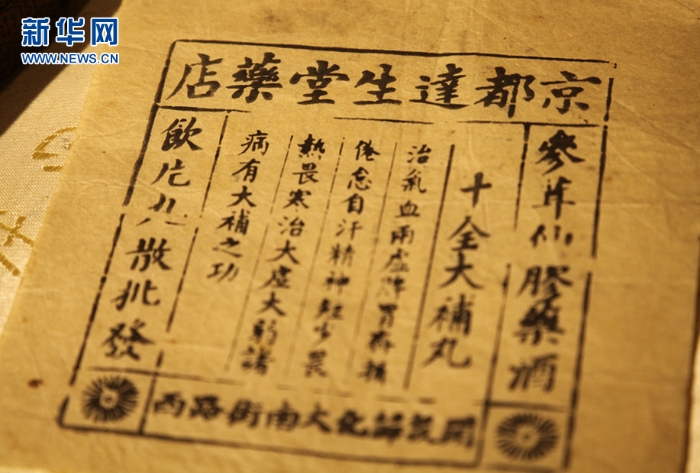 新华网
WWW.NEWS.CN
京都達生堂藥店
參茸仙膠藥酒
十全大補丸
治氣血兩虛脾胃
倦怠自汗精神短少畏
熱畏寒治大虛大弱諸
病有大補之功
飲片丸散批發
開設歸化大南街路西